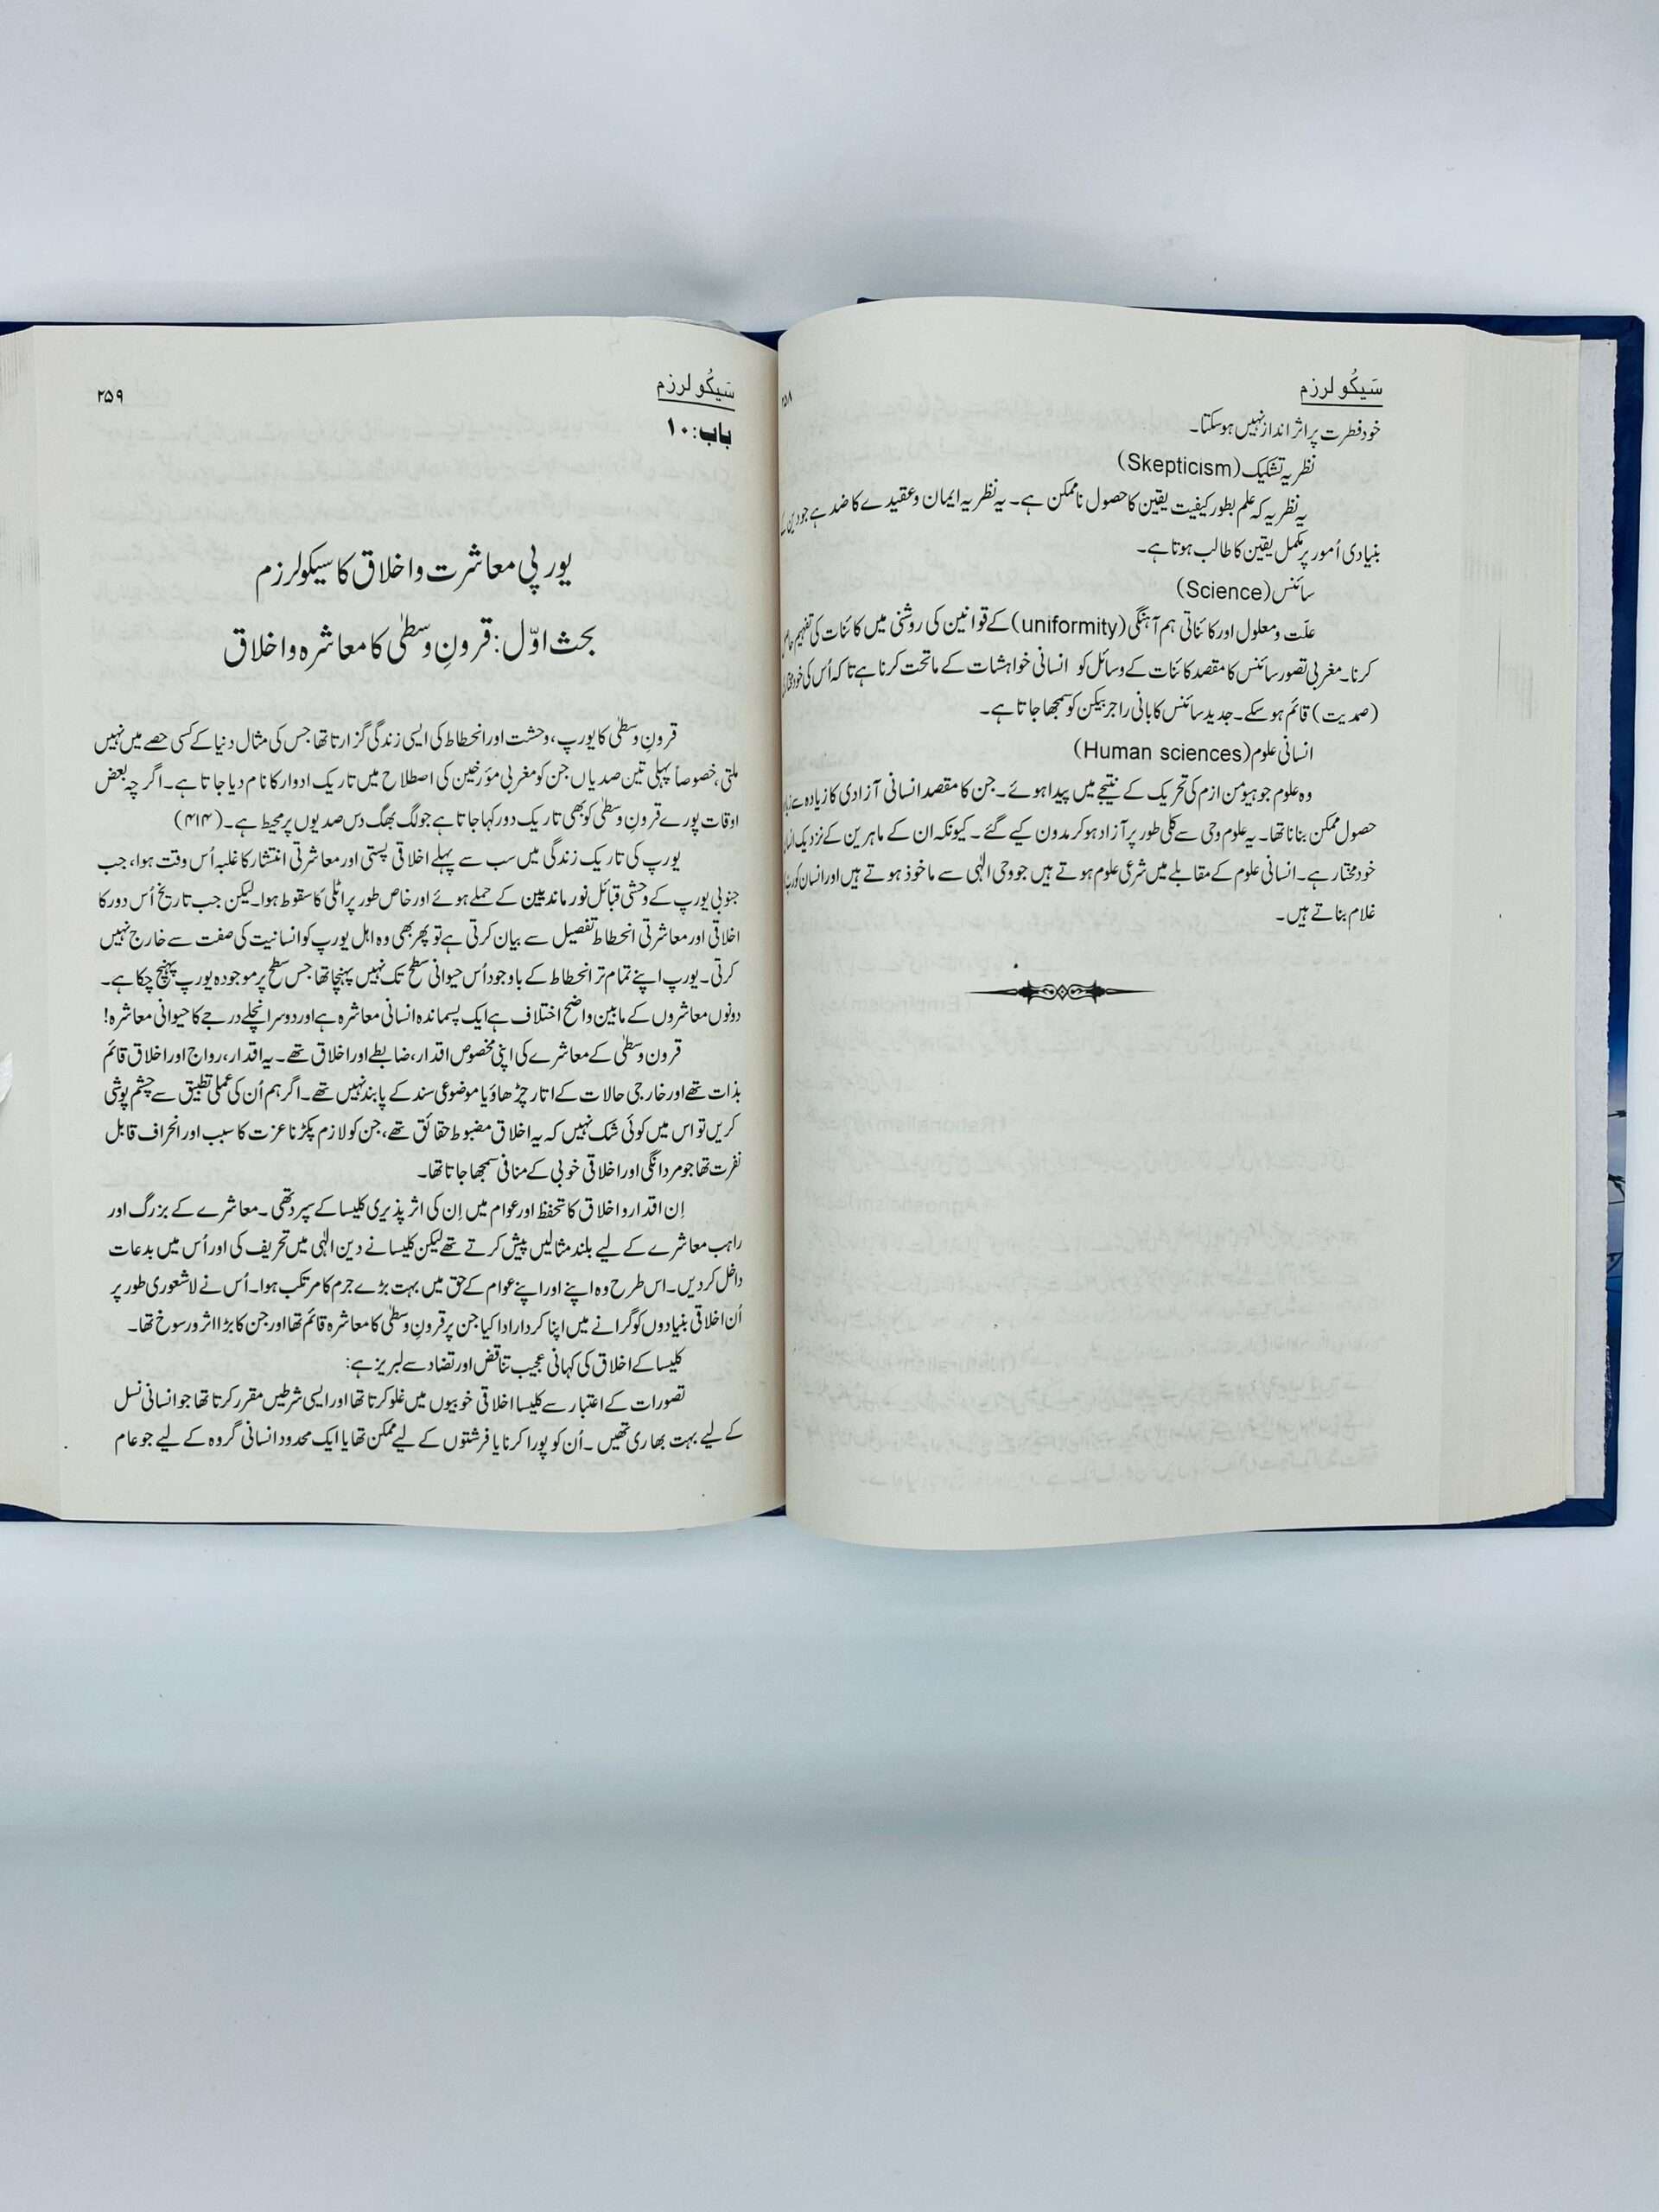 سَیکُولرزم
۲۵۸
خود فطرت پر اثر انداز نہیں ہو سکتا۔
نظریہ تشکیک (Skepticism)
یہ نظریہ کہ علم بطور کیفیت یقین کا حصول ناممکن ہے۔ یہ نظریہ ایمان و عقیدے کا ضد ہے جو دین کے
بنیادی اُمور پر مکمل یقین کا طالب ہوتا ہے۔
سائنس (Science)
علّت و معلول اور کائناتی ہم آہنگی (uniformity) کے قوانین کی روشنی میں کائنات کی تفہیم حاصل
کرنا۔ مغربی تصور سائنس کا مقصد کائنات کے وسائل کو انسانی خواہشات کے ماتحت کرنا ہے تاکہ اُس کی خودمختاری
(صمدیت) قائم ہو سکے۔ جدید سائنس کا بانی راجر بیکن کو سمجھا جاتا ہے۔
انسانی علوم (Human sciences)
وہ علوم جو ہیومن ازم کی تحریک کے نتیجے میں پیدا ہوئے۔ جن کا مقصد انسانی آزادی کا زیادہ سے زیادہ
حصول ممکن بنانا تھا۔ یہ علوم وحی سے کلی طور پر آزاد ہو کر مدون کیے گئے۔ کیونکہ ان کے ماہرین کے نزدیک انسان
خودمختار ہے۔ انسانی علوم کے مقابلے میں شرعی علوم ہوتے ہیں جو وحی الٰہی سے ماخوذ ہوتے ہیں اور انسان کو
غلام بناتے ہیں۔
سَیکُولرزم
۲۵۹
باب: ۱۰
یورپی معاشرت و اخلاق کا سیکولرزم
بحث اوّل: قرونِ وسطیٰ کا معاشرہ و اخلاق
قرونِ وسطیٰ کا یورپ، وحشت اور انحطاط کی ایسی زندگی گزارتا تھا جس کی مثال دنیا کے کسی حصے میں نہیں
ملتی، خصوصاً پہلی تین صدیاں جن کو مغربی مؤرخین کی اصطلاح میں تاریک ادوار کا نام دیا جاتا ہے۔ اگرچہ بعض
اوقات پورے قرونِ وسطیٰ کو بھی تاریک دور کہا جاتا ہے جو لگ بھگ دس صدیوں پر محیط ہے۔ (۴۱۴)
یورپ کی تاریک زندگی میں سب سے پہلے اخلاقی پستی اور معاشرتی انتشار کا غلبہ اُس وقت ہوا، جب
جنوبی یورپ کے وحشی قبائل نور ماندیین کے حملے ہوئے اور خاص طور پر اٹلی کا سقوط ہوا۔ لیکن جب تاریخ اُس دور کا
اخلاقی اور معاشرتی انحطاط تفصیل سے بیان کرتی ہے تو پھر بھی وہ اہل یورپ کو انسانیت کی صفت سے خارج نہیں
کرتی۔ یورپ اپنے تمام تر انحطاط کے باوجود اُس حیوانی سطح تک نہیں پہنچا تھا جس سطح پر موجودہ یورپ پہنچ چکا ہے۔
دونوں معاشروں کے مابین واضح اختلاف ہے ایک پسماندہ انسانی معاشرہ ہے اور دوسرا نچلے درجے کا حیوانی معاشرہ!
قرون وسطیٰ کے معاشرے کی اپنی مخصوص اقدار، ضابطے اور اخلاق تھے۔ یہ اقدار، رواج اور اخلاق قائم
بذات تھے اور خارجی حالات کے اتار چڑھاؤ یا موضوعی سند کے پابند نہیں تھے۔ اگر ہم اُن کی عملی تطبیق سے چشم پوشی
کریں تو اس میں کوئی شک نہیں کہ یہ اخلاق مضبوط حقائق تھے، جن کو لازم پکڑنا عزت کا سبب اور انحراف قابل
نفرت تھا جو مردانگی اور اخلاقی خوبی کے منافی سمجھا جاتا تھا۔
اِن اقدار و اخلاق کا تحفظ اور عوام میں اِن کی اثر پذیری کلیسا کے سپرد تھی۔ معاشرے کے بزرگ اور
راہب معاشرے کے لیے بلند مثالیں پیش کرتے تھے لیکن کلیسا نے دین الٰہی میں تحریف کی اور اُس میں بدعات
داخل کر دیں۔ اس طرح وہ اپنے اور اپنے عوام کے حق میں بہت بڑے جرم کا مرتکب ہوا۔ اُس نے لاشعوری طور پر
اُن اخلاقی بنیادوں کو گرانے میں اپنا کردار ادا کیا جن پر قرونِ وسطیٰ کا معاشرہ قائم تھا اور جن کا بڑا اثر و رسوخ تھا۔
کلیسا کے اخلاق کی کہانی عجیب تناقض اور تضاد سے لبریز ہے:
تصورات کے اعتبار سے کلیسا اخلاقی خوبیوں میں غلو کرتا تھا اور ایسی شرطیں مقرر کرتا تھا جو انسانی نسل
کے لیے بہت بھاری تھیں۔ اُن کو پورا کرنا یا فرشتوں کے لیے ممکن تھا یا ایک محدود انسانی گروہ کے لیے جو عام